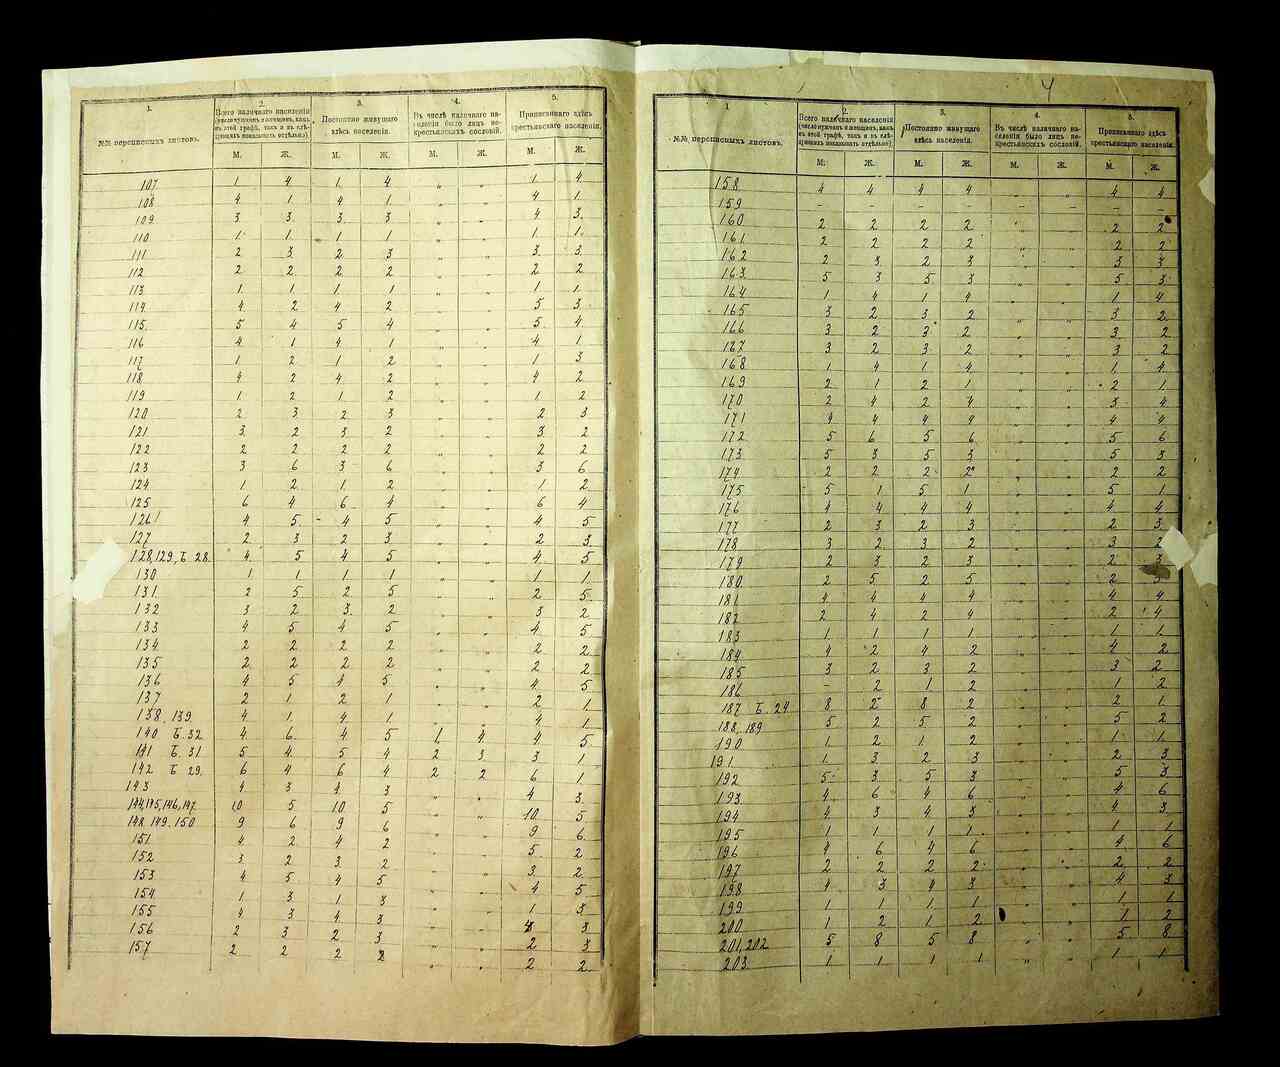 1.
2.
3.
4.
5.
№№ переписныхъ листовъ.
Всего наличнаго населенія
(число мужчинъ и женщинъ, какъ
въ этой графѣ, такъ и въ слѣ-
дующихъ показывать отдѣльно).
Постоянно живущаго
здѣсь населенія.
Въ числѣ наличнаго на-
селенія было лицъ не-
крестьянскихъ сословій.
Приписаннаго здѣсь
крестьянскаго населенія.
М. Ж. М. Ж. М. Ж. М. Ж.
107 1 4 1 4 „ „ 1 4
108 4 1 4 1 „ „ 4 1
109 3 3 3 3 „ „ 4 3
110 1 1 1 1 „ „ 1 1
111 2 3 2 3 „ „ 3 3
112 2 2 2 2 „ „ 2 2
113 1 1 1 1 „ „ 1 1
114 4 2 4 2 „ „ 5 3
115 5 4 5 4 „ „ 5 4
116 4 1 4 1 „ „ 4 1
117 1 2 1 2 „ „ 1 3
118 4 2 4 2 „ „ 4 2
119 1 2 1 2 „ „ 1 2
120 2 3 2 3 „ „ 2 3
121 3 2 3 2 „ „ 3 2
122 2 2 2 2 „ „ 2 2
123 3 6 3 6 „ „ 3 6
124 1 2 1 2 „ „ 1 2
125 6 4 6 4 „ „ 6 4
126 4 5 4 5 „ „ 4 5
127 2 3 2 3 „ „ 2 3
128, 129, Б 28 4 5 4 5 „ „ 4 5
130 1 1 1 1 „ „ 1 1
131 2 5 2 5 „ „ 2 5
132 3 2 3 2 „ „ 3 2
133 4 5 4 5 „ „ 4 5
134 2 2 2 2 „ „ 2 2
135 2 2 2 2 „ „ 2 2
136 4 5 4 5 „ „ 4 5
137 2 1 2 1 „ „ 2 1
138, 139 4 1 4 1 „ „ 4 1
140 Б. 32 4 6 4 5 1 4 4 5
141 Б. 31 5 4 5 4 2 3 3 1
142 Б 29 6 4 6 4 2 2 6 1
143 4 3 4 3 „ „ 4 3
144, 145, 146, 147 10 5 10 5 „ „ 10 5
148. 149. 150 9 6 9 6 „ „ 9 6
151 4 2 4 2 „ „ 5 2
152 3 2 3 2 „ „ 3 2
153 4 5 4 5 „ „ 4 5
154 1 3 1 3 „ „ 1 3
155 4 3 4 3 „ „ 3
156 2 3 2 3 „ „ 2 3
157 2 2 2 2 „ „ 2 2
4
1.
2.
3.
4.
5.
№№ переписныхъ листовъ.
Всего наличнаго населенія
(число мужчинъ и женщинъ, какъ
въ этой графѣ, такъ и въ слѣ-
дующихъ показывать отдѣльно).
Постоянно живущаго
здѣсь населенія.
Въ числѣ наличнаго на-
селенія было лицъ не-
крестьянскихъ сословій.
Приписаннаго здѣсь
крестьянскаго населенія.
М. Ж. М. Ж. М. Ж. М. Ж.
158 4 4 4 4 „ „ 4 4
159 – – – – – – – –
160 2 2 2 2 „ „ 2 2
161 2 2 2 2 „ „ 2 2
162 2 3 2 3 „ „ 3 3
163 5 3 5 3 „ „ 5 3
164 1 4 1 4 „ „ 1 4
165 3 2 3 2 „ „ 3 2
166 3 2 3 2 „ „ 3 2
167 3 2 3 2 „ „ 3 2
168 1 4 1 4 „ „ 1 4
169 2 1 2 1 „ „ 2 1
170 2 4 2 4 „ „ 3 4
171 4 4 4 4 „ „ 4 4
172 5 6 5 6 „ „ 5 6
173 5 3 5 3 „ „ 5 3
174 2 2 2 2 „ „ 2 2
175 5 1 5 1 „ „ 5 1
176 4 4 4 4 „ „ 4 4
177 2 3 2 3 „ „ 2 3
178 3 2 3 2 „ „ 3 2
179 2 3 2 3 „ „ 2 3
180 2 5 2 5 „ „ 2 5
181 4 4 4 4 „ „ 4 4
182 2 4 2 4 „ „ 2 4
183 1 1 1 1 „ „ 1 1
184 4 2 4 2 „ „ 4 2
185 3 2 3 2 „ „ 3 2
186 – 2 1 2 „ „ 1 2
187 Б. 24 8 2 8 2 „ „ 2 1
188, 189 5 2 5 2 „ „ 5 2
190 1 2 1 2 „ „ 1 1
191 1 3 2 3 „ „ 2 3
192 5 3 5 3 „ „ 5 3
193 4 6 4 6 „ „ 4 6
194 4 3 4 3 „ „ 4 3
195 1 1 1 1 „ „ 1 1
196 4 6 4 6 „ „ 4 6
197 2 2 2 2 „ „ 2 2
198 4 3 4 3 „ „ 4 3
199 1 1 1 1 „ „ 1 1
200 1 2 1 2 „ „ 1 2
201, 202 5 8 5 8 „ „ 5 8
203 1 1 1 1 „ „ 1 1